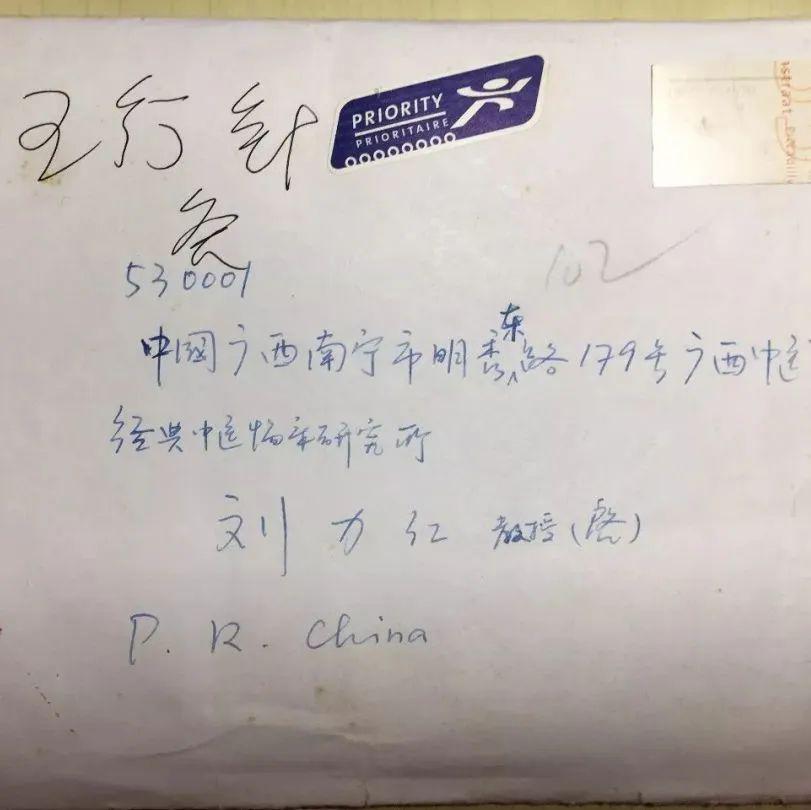 五行针灸
PRIORITY
PRIORITAIRE
530001
102
中國广西南宁市明秀东路179号广西中医
经典中医临床研究所
刘力红 教授(啟)
P. R. China